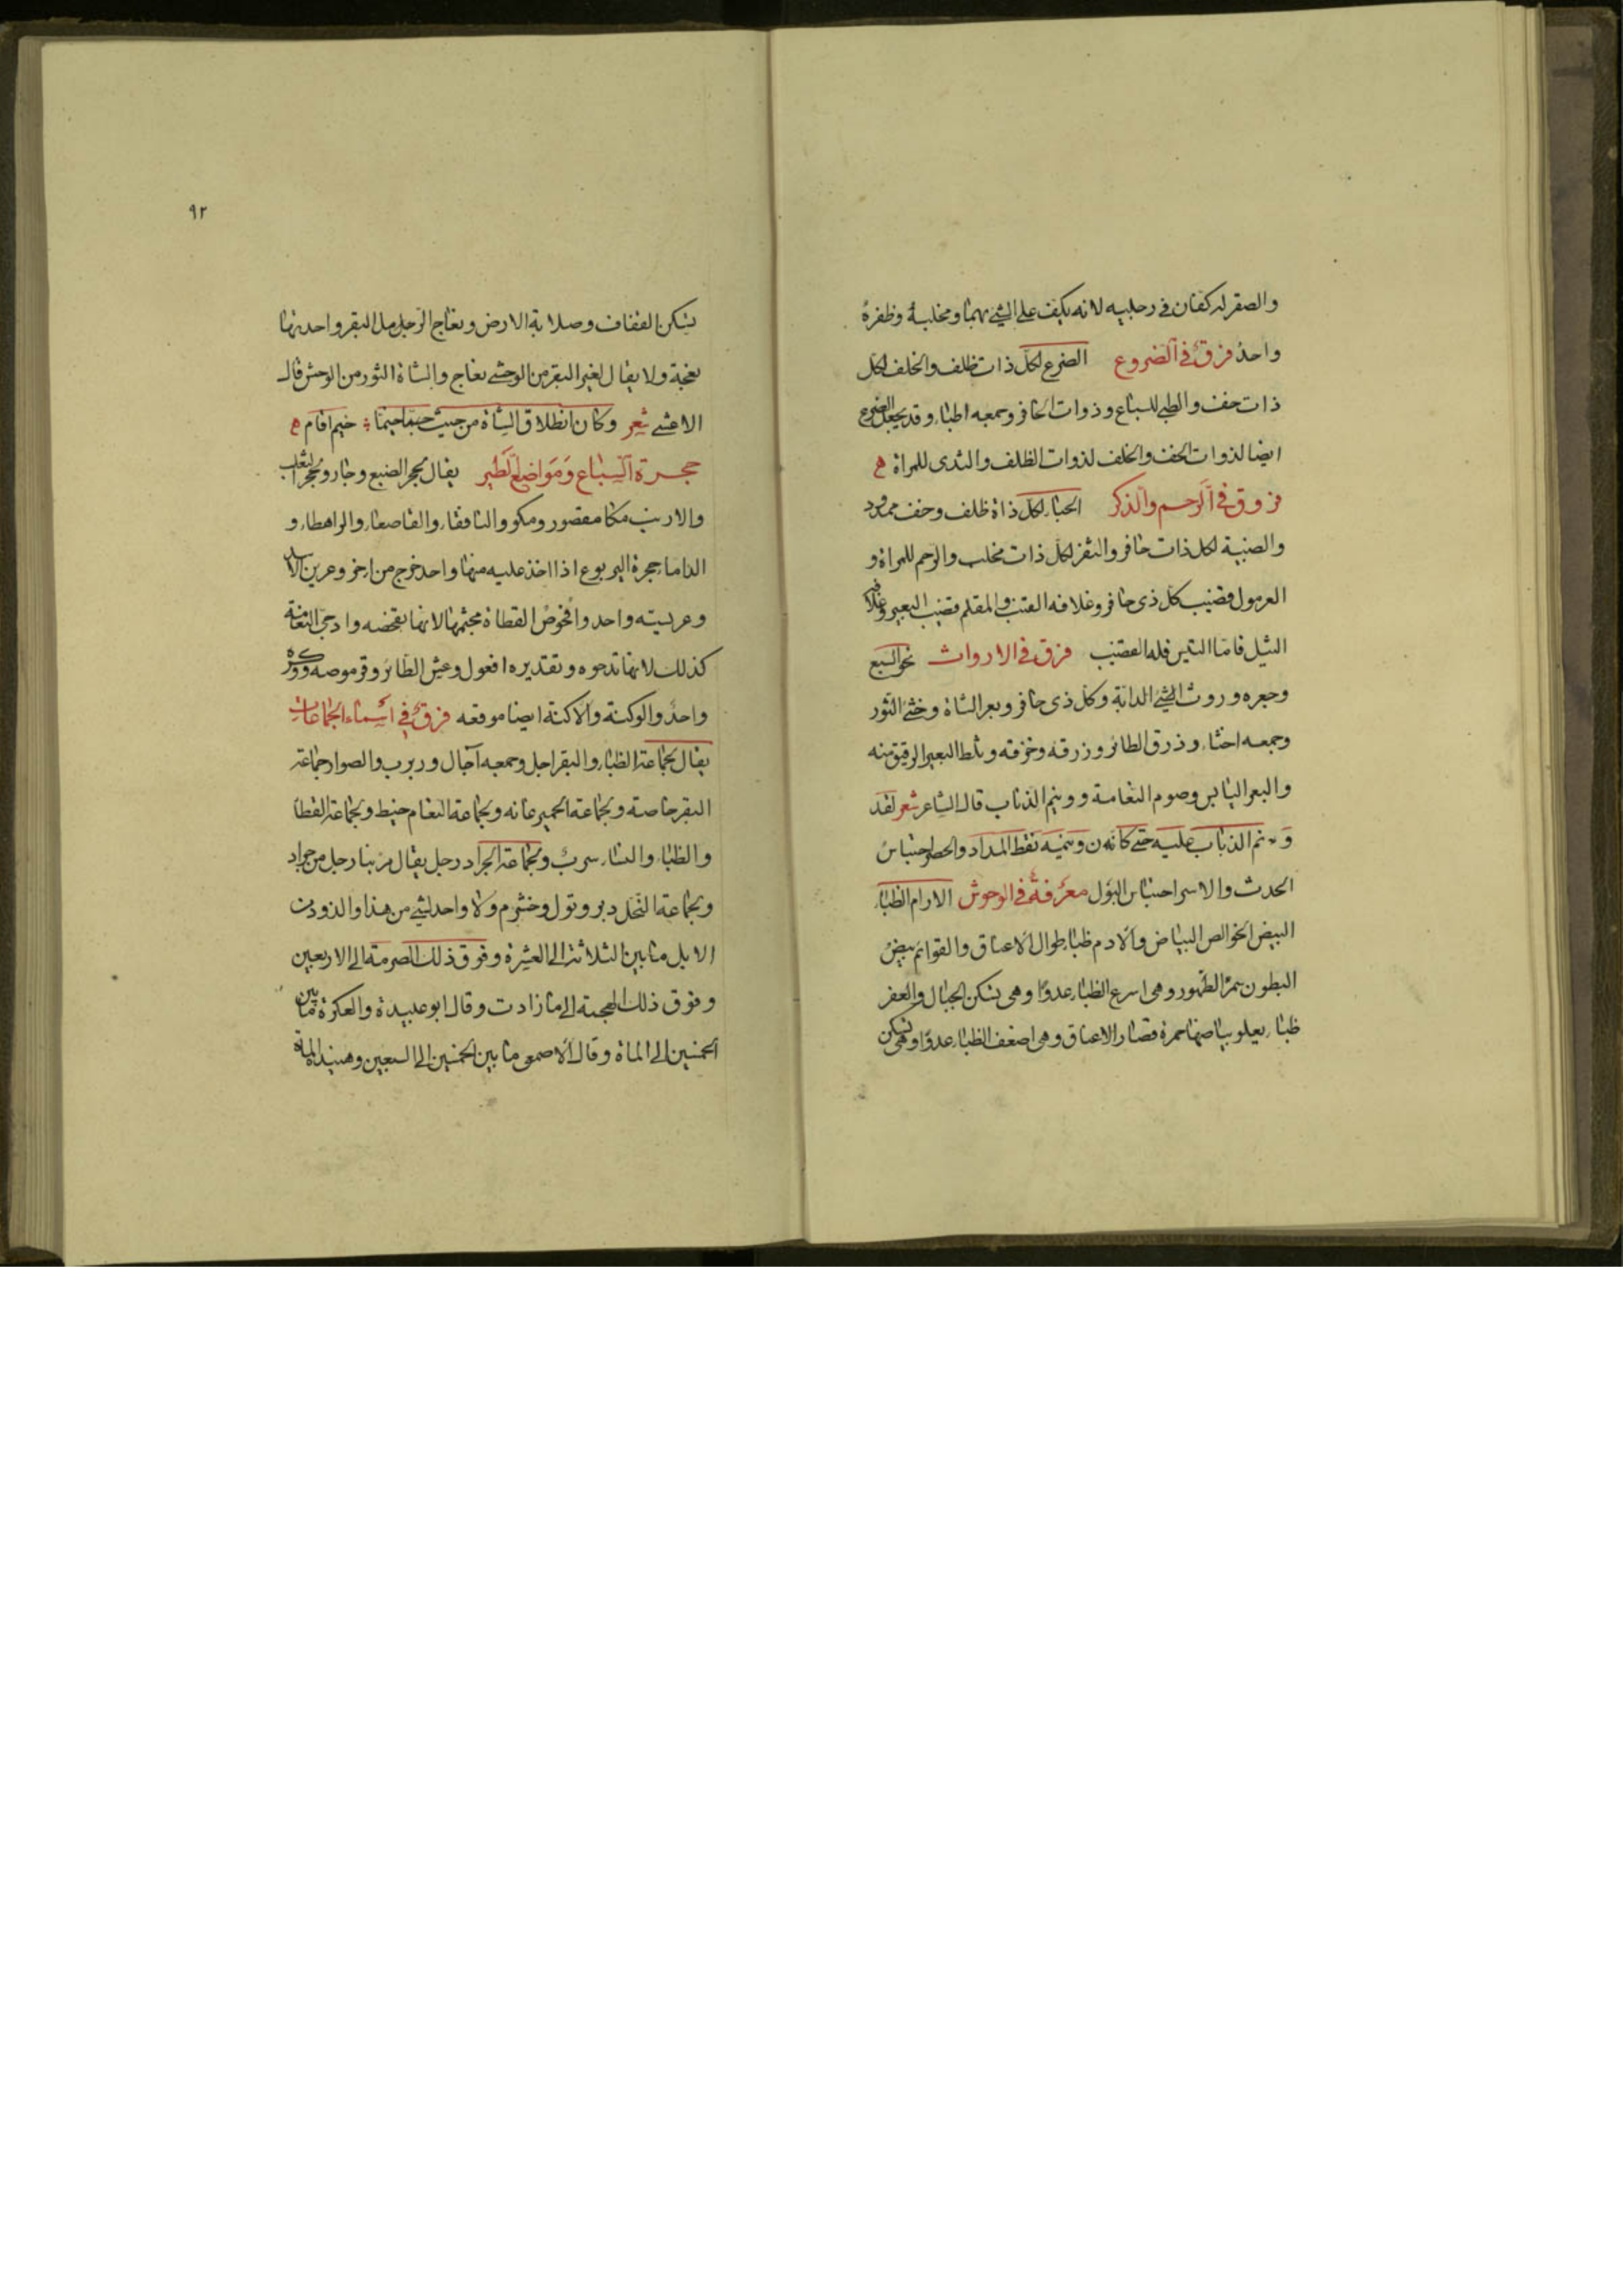 والصقر له كفان في رجليه لانه يكف على الشئ بهما ومخلبه وظفره
واحد فرق في الضروع الضرع لكل ذات ظلف والخلف لكل
ذات خف والطبي للسباع وذوات الحافر وجمعه اطباء وقد يجعل الضرع
ايضا لذوات الخف والخلف لذوات الظلف والثدى للمراة ه
فروق في الرحم والذكر الحياء لكل ذاة ظلف وخف ممدود
والضبية لكل ذات حافر والثفر لكل ذات مخلب والرحم للمراة و
الغرمول قضيب كل ذى حافر وغلافه القنب والمقلم قضيب البعير وغلافه
الثيل فاما التيس فله القضيب فرق في الارواث نجو السبع
وجعره وروث الشئ الدابة وكل ذى حافر وبعر الشاة وخثى الثور
وجمعه اخثاء وذرق الطائر وزرقه وخزقه وثلط البعير الرقيق منه
والبعر اليابس وصوم النعامة وونيم الذباب قال الشاعر شعر لقد
ونم الذباب عليه حتى كانه ن ونيمه نقط المداد والحصر احتباس
الحدث والاسر احتباس البول معرفة في الوحوش الارام الظباء
البيض الخوالص البياض والادم ظباء طوال الاعناق والقوائم بيض
البطون سمر الظهور وهى اسرع الظباء عدوًا وهى تسكن الجبال والعفر
ظباء يعلو بياضها حمرة قصار الاعناق وهى اضعف الظباء عدوًا وهى تسكن
٩٢
يسكن القفاف وصلابة الارض ونعاج الرمل البقر واحدتها
نعجة ولا يقال لغير البقر من الوحشى نعاج والشاة الثور من الوحش قال
الاعشى شعر وكان انطلاق الشاة من حيث خيما خيم اقام ه
حجرة السباع ومواضع الطير يقال لجحر الضبع وجار ولجحر الثعلب
والارنب مكا مقصور ومكو والنافقاء والقاصعاء والراهطاء و
الداماء جحرة اليربوع اذا اخذ عليه منها واحد خرج من اخر وعرين الاسد
وعريسته واحد وافحوص القطاة مجثمها لانها تفحصه وادحى النعامة
كذلك لانها تدحوه وتقديره افعول وعش الطائر وقرموصه ووكره
واحد والوكنة والاكنة ايضا موقعه فرق في اسماء الجماعات
يقال لجماعة الظباء والبقر اجل وجمعه آجال وربرب والصوار جماعة
البقر خاصة ولجماعة الحمير عانه ولجماعة النعام خيط ولجماعة القطا
والظباء والنساء سرب ولجماعة الجراد رجل يقال مر بنا رجل من جراد
ولجماعة النحل دبر وثول وخشرم ولا واحد لشئ من هذا والذود من
الابل ما بين الثلاثة الى العشرة وفوق ذلك الصرمة الى الاربعين
وفوق ذلك الهجمة الى ما زادت وقال ابو عبيدة والعكرة ما بين
الخمسين الى الماة وقال الاصمعى ما بين الخمسين الى السبعين وهنيدة الماة